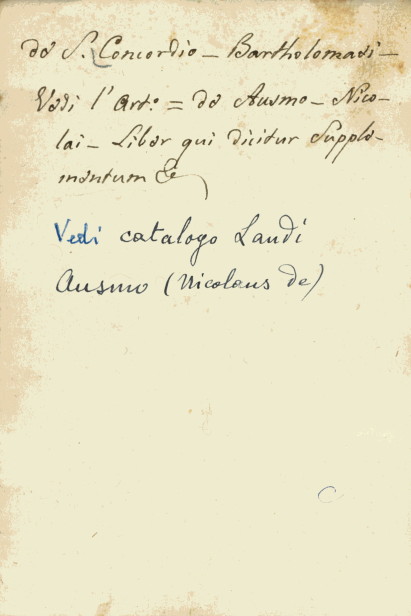 de S. Concordio – Bartholomaei –
Vedi l'Art.º = de Ausmo – Nico-
lai – Liber qui dicitur Supple-
mentum &
Vedi catalogo Landi
Ausmo (Nicolaus de)